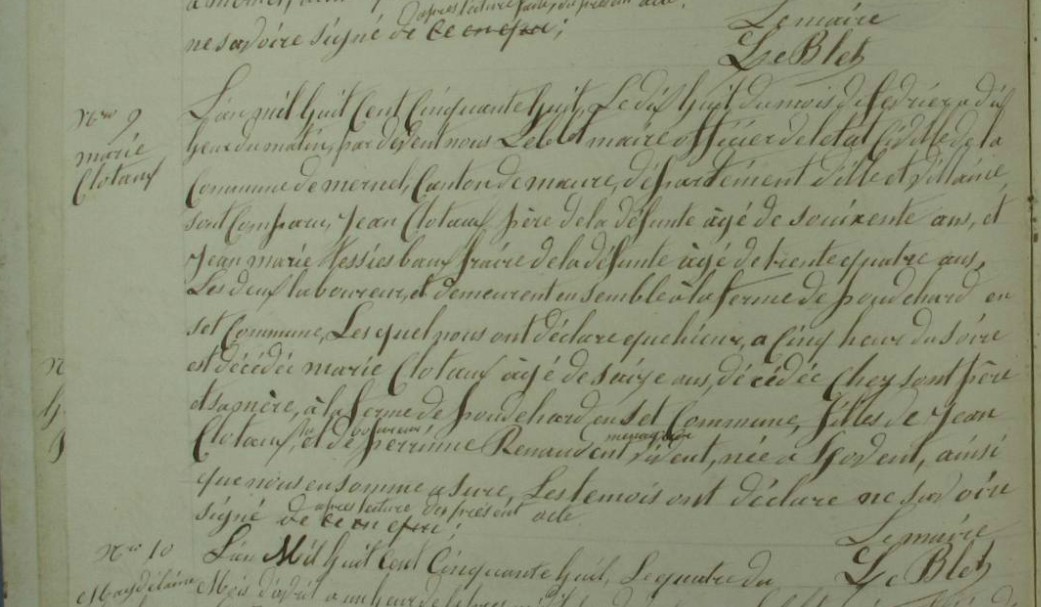 ne savoire signé de ce enquri;
après lecture faite du présent acte.
Lemaire
Le Blet
Nro 9
marie
Clotaux
L'an mil huit Cent Cinquante huit, Le dix huit du mois de fevrier a dix
heur du matin, par devent nous Leblet maire officier de letat Civille de la
Commune de mernel, Canton de maure, département d'ille et villaine,
sont Comparu, Jean Clotaux père de la défunte âgé de souixente ans, et
Jean marie Tessier baux fraire de la défunte âgé de trente quatre ans,
Les deux laboureur, et demeurent ensemble à la ferme de en
set Commune, Les quel nous ont déclare que hieur, a Cinq heur du soire
est décédée marie Clotaux âgé de seize ans, décédée Chez sont père
et sa mère, à la ferme de en set Commune, filles de Jean
Clotaux, laboureur, et de perrinne Renaud menagère ent vivent, née a , ainsi
que nous en somme asure, Les temois ont déclare ne savoire
signé de
après lecture du présent acte
Lemaire
Le Blet
Nro 10
Magdelaine
L'an Mil huit Cent Cinquante huit, Le quatre du
Mois d'avril a un heur